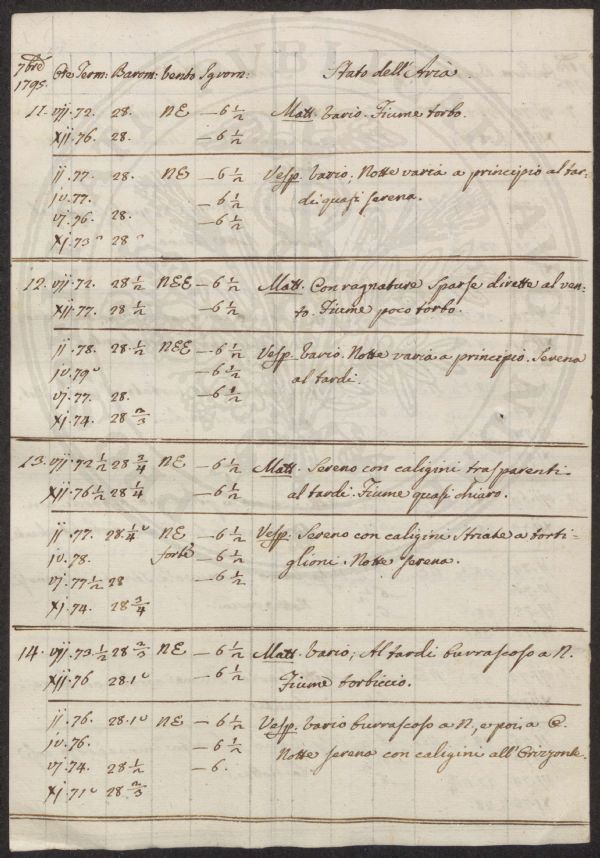 7bre Ore Term: Barom: Vento Sgvom: Stato dell'Aria.
1795.
11. vij. 72. 28. NE — 6 1/2 Matt. Vario. Fiume torbo.
xij. 76. 28. — 6 1/2
ij. 77. 28. NE — 6 1/2 Vesp. Vario; Notte varia a principio al tar-
iv. 77. — 6 1/2 di quasi serena.
vj. 76. 28. — 6 1/2
xj. 73 28
12. vij. 72. 28 1/2 NEE — 6 1/2 Matt. Con ragnature sparse dirette al ven-
xij. 77. 28 1/2 — 6 1/2 to. Fiume poco torbo.
ij. 78. 28 1/2 NEE — 6 1/2 Vesp. Vario. Notte varia a principio. Serena
iv. 79 — 6 1/2 al tardi.
vj. 77. 28. — 6 1/2
xj. 74. 28 2/3
13. vij. 72 1/2 28 3/4 NE — 6 1/2 Matt. Sereno con caligini trasparenti
xij. 76 1/2 28 1/4 — 6 1/2 al tardi. Fiume quasi chiaro.
ij. 77. 28. 1/4 NE — 6 1/2 Vesp. Sereno con caligini striate a torti-
iv. 78. forte — 6 1/2 glioni. Notte serena.
vj. 77 1/2 28 — 6 1/2
xj. 74. 28 3/4
14. vij. 73. 1/2 28 2/3 NE — 6 1/2 Matt. Vario; Al tardi burrascoso a N.
xij. 76 28. 1 — 6 1/2 Fiume torbiccio.
ij. 76. 28. 1 NE — 6 1/2 Vesp. Vario burrascoso a N, e poi a
iv. 76. — 6 1/2 Notte serena con caligini all'Orizzonte.
vj. 74. 28 1/2 — 6.
xj. 71 28 2/3